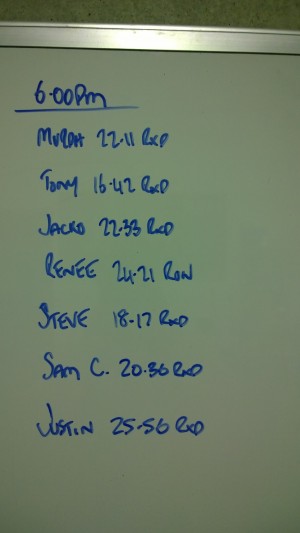 6.00pm
MURPH 22.11 RXD
TONY 16.42 RXD
JACKO 22.33 RXD
RENEE 24.21
STEVE 18-17 RXD
SAM C. 20.36 RXD
JUSTIN 25-56 RXD